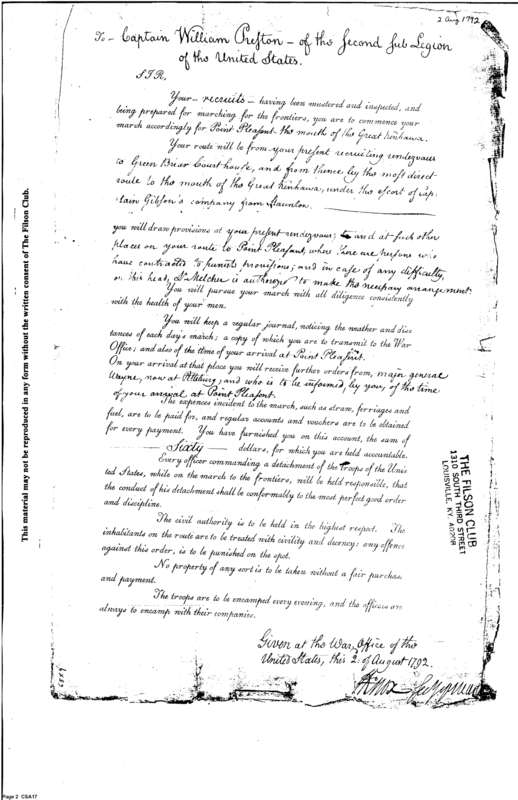 2 Aug 1792
To - Captain William Preston - of the Second Sub Legion
of the United States.
SIR,
Your - recruits - having been mustered and inspected, and
being prepared for marching for the frontiers, you are to commence your
march accordingly for Point Pleasant the mouth of the Great Kenhawa.
Your route will be from your present recruiting rendezvous
to Green Briar Courthouse, and from thence by the most direct
route to the mouth of the Great Kenhawa, under the escort of Cap-
tain Gibson's company from Staunton.
you will draw provisions at your present rendezvous; and at such other
places on your route to Point Pleasant, where there are persons who
have contracted to furnish provisions; and in case of any difficulty
on this head, Dr Melcher is authorized to make the necessary arrangement
You will pursue your march with all diligence consistently
with the health of your men.
You will keep a regular journal, noticing the weather and dis
tances of each day's march; a copy of which you are to transmit to the War
Office; and also of the time of your arrival at Point Pleasant.
On your arrival at that place you will receive further orders from, major general
Wayne, now at Pittsburg; and who is to be informed, by you, of the time
of your arrival at Point Pleasant.
The expences incident to the march, such as straw, ferriages and
fuel, are to be paid for, and regular accounts and vouchers are to be obtained
for every payment. You have furnished you on this account, the sum of
Sixty dollars, for which you are held accountable.
Every officer commanding a detachment of the troops of the Uni
ted States, while on the march to the frontiers, will be held responsible, that
the conduct of his detachment shall be conformably to the most perfect good order
and discipline.
The civil authority is to be held in the highest respect. The
inhabitants on the route are to be treated with civility and decency: any offence
against this order, is to be punished on the spot.
No property of any sort is to be taken without a fair purchase
and payment.
The troops are to be encamped every evening, and the officers are
always to encamp with their companies.
Given at the War Office of the
United States, this 2d of August 1792.
HKnox
This material may not be reproduced in any form without the written consent of The Filson Club.
THE FILSON CLUB
1310 SOUTH THIRD STREET
LOUISVILLE, KY. 40208
Page 2 CSA17